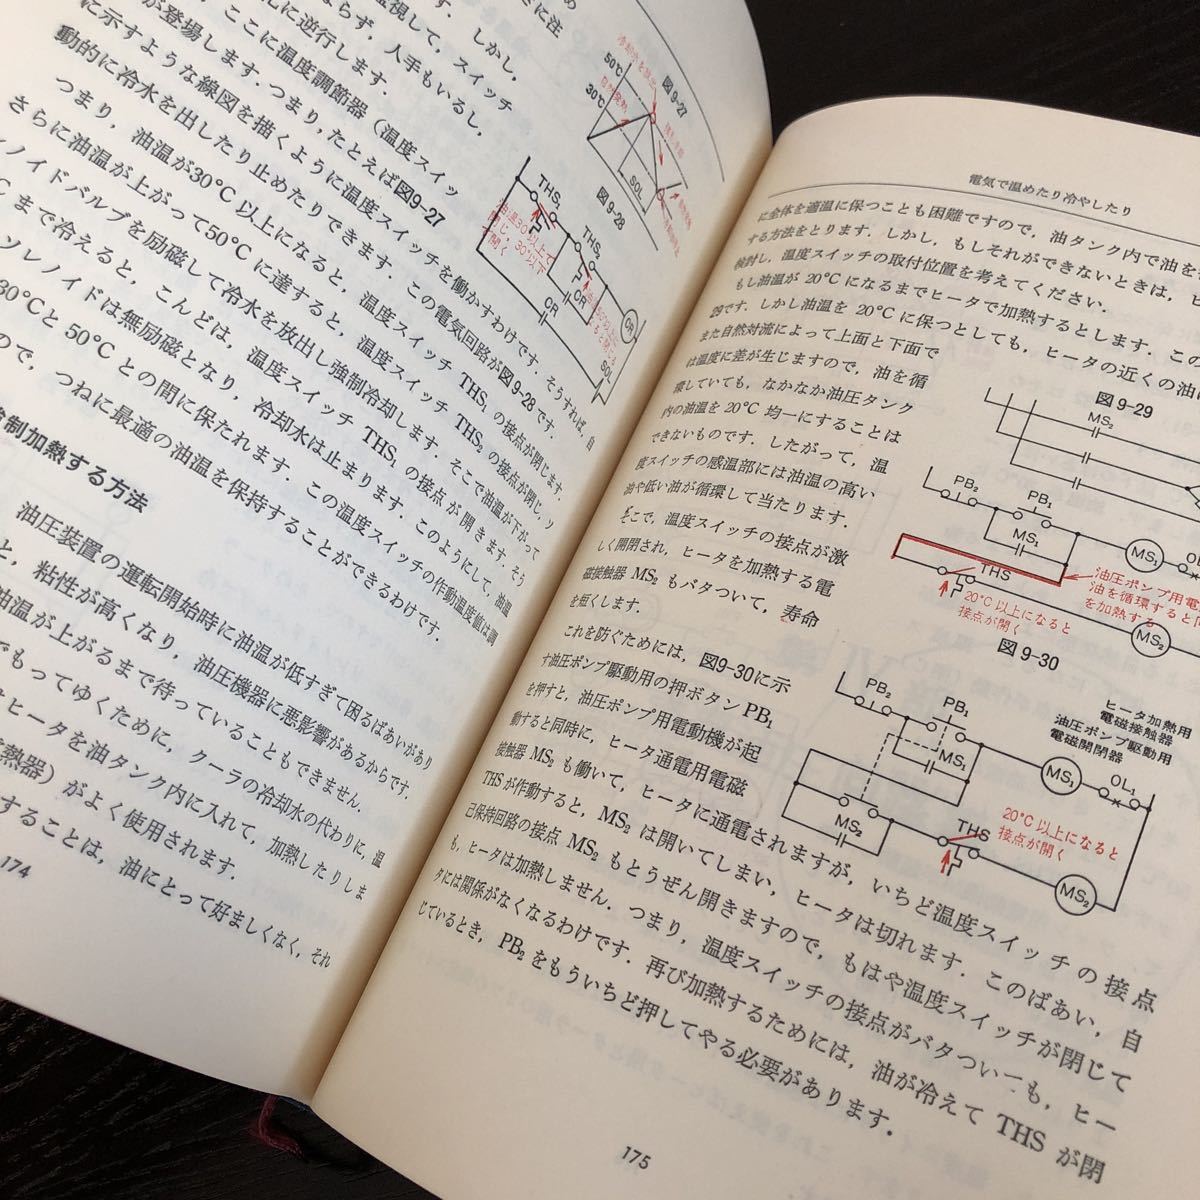 さに注
監視して，スイッチ
まらず，人手もいるし，
に逆行します．しかし，
が登場します．つまり，たとえば図9-27
ここに温度調節器（温度スイッ
に示すような線図を描くように温度スイッチを働かすわけです．そうすれば，自
動的に冷水を出したり止めたりできます．この電気回路が図9-28です．
つまり，油温が30°C以上になると，温度スイッチ THS₁ の接点が閉じます．
さらに油温が上がって50°Cに達すると，温度スイッチ THS₂ の接点が閉じ，ソ
レノイドバルブを励磁して冷水を放出し強制冷却します．そこで油温が下がって
まで冷えると，こんどは，温度スイッチ THS₁ の接点が開きます．そう
ソレノイドは無励磁となり，冷却水は止まります．このようにして，油温
30°Cと 50°C との間に保たれます．この温度スイッチの作動温度値は調
ので，つねに最適の油温を保持することができるわけです．
制加熱する方法
油圧装置の運転開始時に油温が低すぎて困るばあいがあり
と，粘性が高くなり，油圧機器に悪影響があるからです．
油温が上がるまで待っていることもできません．
でもってゆくために，クーラの冷却水の代わりに，温
はヒータを油タンク内に入れて，加熱したりしま
熱器）がよく使用されます．
することは，油にとって好ましくなく，それ
174
図9-27
50℃
30℃
自然発熱
SOL
図9-28
THS₁
油温30°以上で
閉じ，30°以下
開く
THS₂
CR
CR
CR
SOL
電気で温めたり冷やしたり
に全体を適温に保つことも困難ですので，油タンク内で油を
する方法をとります．しかし，もしそれができないときは，
検討し，温度スイッチの取付位置を考えてください．
もし油温が 20°Cになるまでヒータで加熱するとします．この
29です．しかし油温を 20°C に保つとしても，ヒータの近くの油は
また自然対流によって上面と下面で
は温度に差が生じますので，油を循
環していても，なかなか油圧タンク
内の油温を 20°C 均一にすることは
できないものです．したがって，温
度スイッチの感温部には油温の高い
油や低い油が循環して当たります．
そこで，温度スイッチの接点が激
しく開閉され，ヒータを加熱する電
磁接触器 MS₂ もバタついて，寿命
を短くします．
これを防ぐためには，図9-30に示
す油圧ポンプ駆動用の押ボタン PB₁
を押すと，油圧ポンプ用電動機が起
動すると同時に，ヒータ通電用電磁
接触器 MS₂ も働いて，ヒータに通電されますが，いちど温度スイッチの接点
THSが作動すると，MS₂ は開いてしまい，ヒータは切れます．このばあい，自
己保持回路の接点 MS₂ もとうぜん開きますので，もはや温度スイッチが閉じて
も，ヒータは加熱しません．つまり，温度スイッチの接点がバタついても，ヒー
タには関係がなくなるわけです．再び加熱するためには，油が冷えて THS が閉
じているとき，PB₂ をもういちど押してやる必要があります．
図9-29
MS₂
PB₂
PB₁
MS₁
MS₁
THS
油圧ポンプ用電
油を循環すると同
を加熱する
20°C以上になると
接点が開く
MS₂
図9-30
PB₂
PB₁
ヒータ加熱用
電磁接触器
油圧ポンプ駆動用
電磁開閉器
MS₁
MS₁
OL₁
MS₂
THS
20°C以上になると
接点が開く
MS₂
175